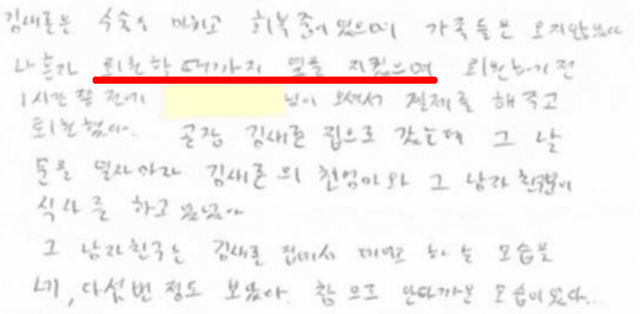 김새론은 수술을 마치고 회복중이었으며 가족들은 오지않았다
나혼자 퇴원할때까지 옆을 지켰으며 퇴원하기전
1시간 쯤 전에 님이 오셔서 결제를 해주고
퇴원했다. 곧장 김새론 집으로 갔는데 그 날
문을 열자마자 김새론의 친엄마와 그 남자친구분이
식사를 하고 있었다
그 남자친구는 김새론 집에서 데면데면 하는 모습을
네, 다섯번 정도 보았다. 참으로 안타까운 모습이었다...